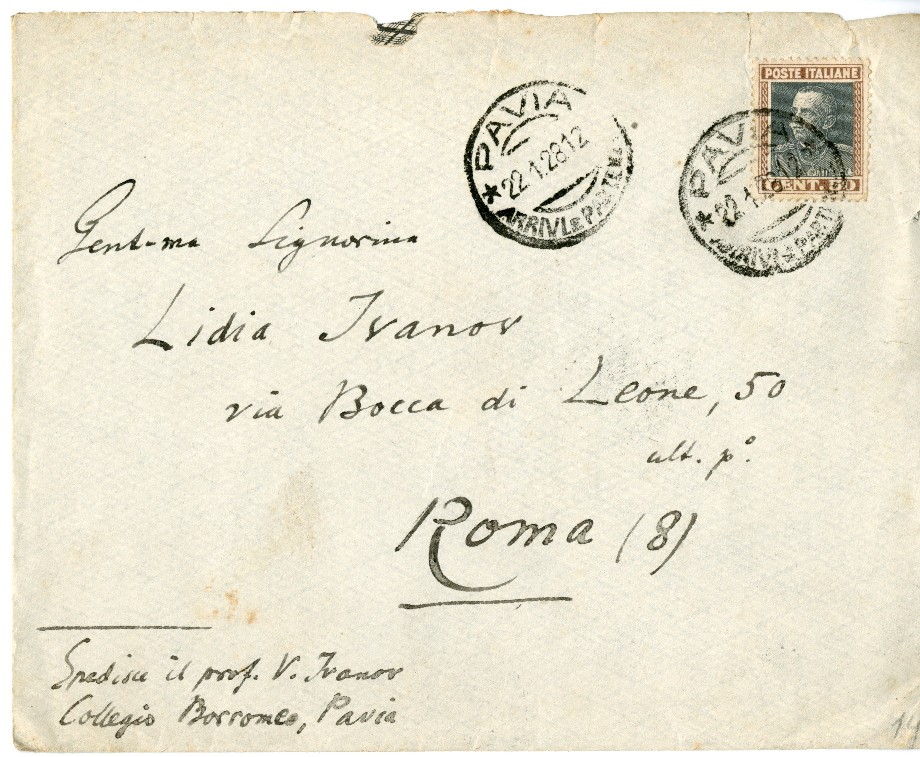 POSTE ITALIANE
CENT. 50
PAVIA
22.1.28 12
ARRIVI E PARTENZE
PAVIA
22.1.28 12
ARRIVI E PARTENZE
Gent-ma Signorina
Lidia Ivanov
via Bocca di Leone, 50
ult. p.º
Roma (8)
Spedisce il prof. V. Ivanov
Collegio Borromeo, Pavia
14